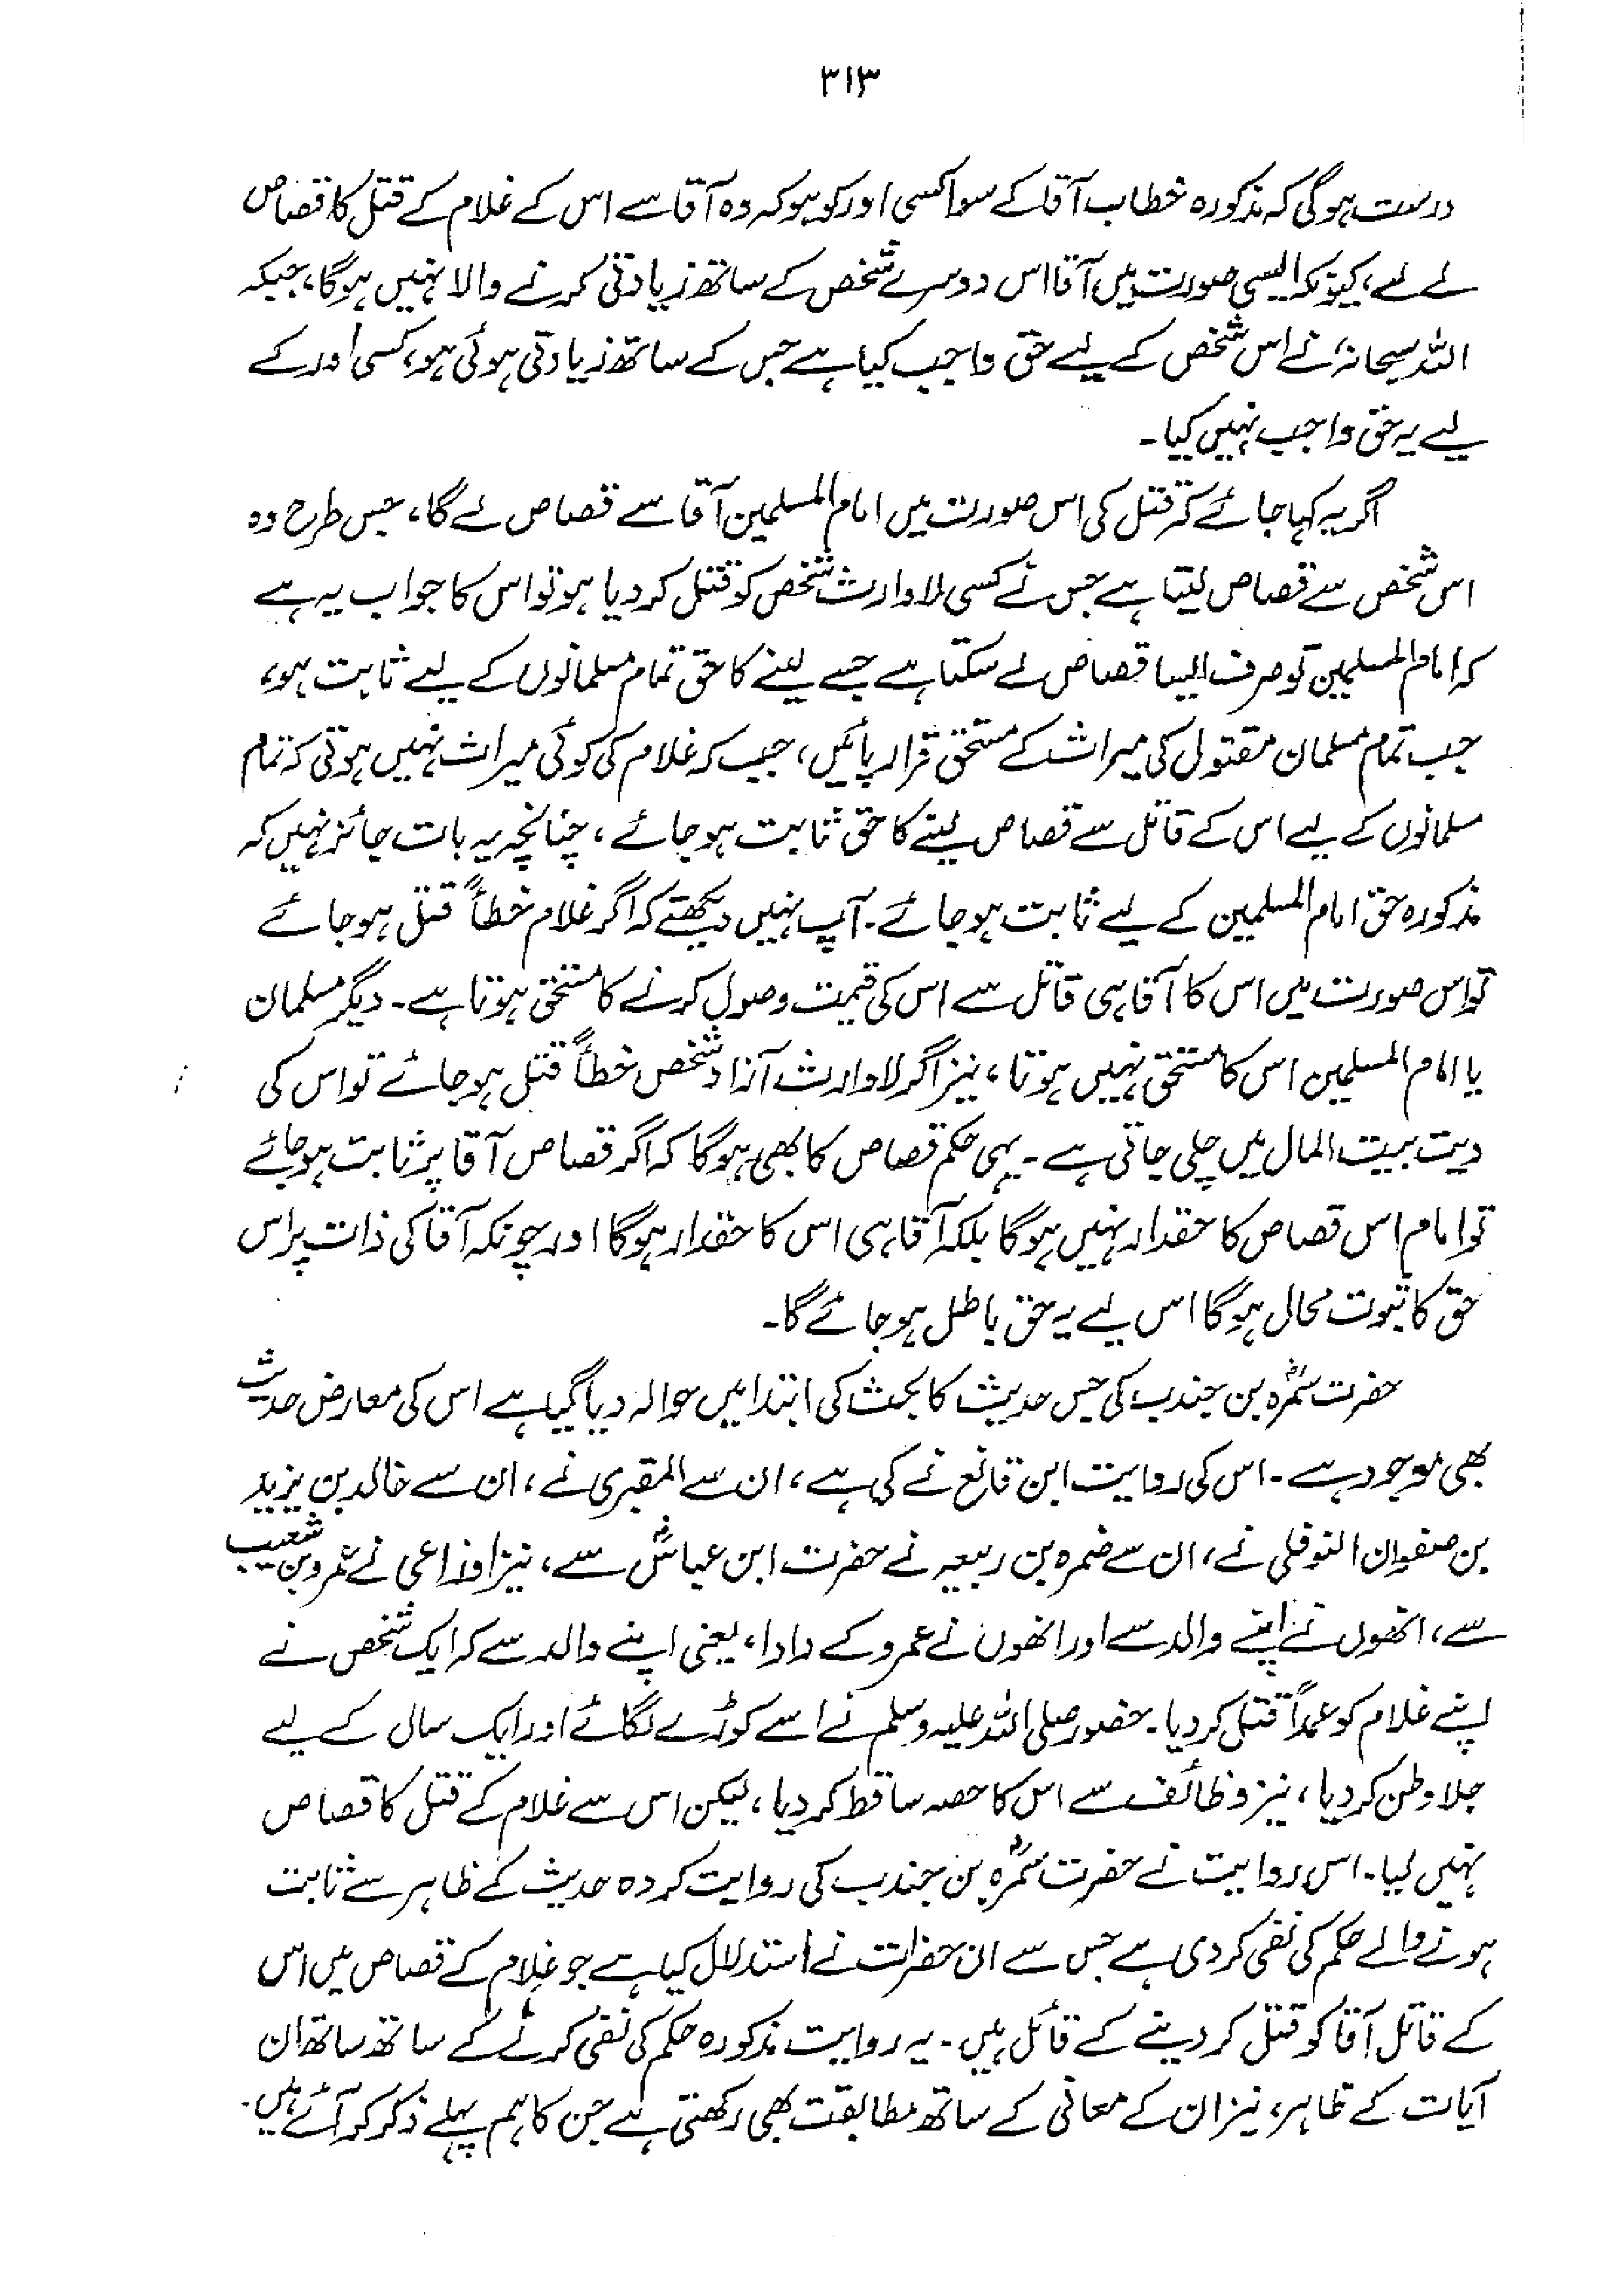 ۳۱۳
درست ہوگی کہ مذکورہ خطاب آقا کے سوا کسی اور کو ہو کہ وہ آقا سے اس کے غلام کے قتل کا قصاص
لے لے، کیونکہ ایسی صورت میں آقا اس دوسرے شخص کے ساتھ زیادتی کرنے والا نہیں ہوگا، جبکہ
اللہ سبحانہٗ نے اس شخص کے لیے حق واجب کیا ہے جس کے ساتھ زیادتی ہوئی ہو، کسی اور کے
لیے یہ حق واجب نہیں کیا۔
اگر یہ کہا جائے کہ قتل کی اس صورت میں امام المسلمین آقا سے قصاص لے گا، جس طرح وہ
اس شخص سے قصاص لیتا ہے جس نے کسی لاوارث شخص کو قتل کر دیا ہو تو اس کا جواب یہ ہے
کہ امام المسلمین کو صرف ایسا قصاص لے سکتا ہے جسے لینے کا حق تمام مسلمانوں کے لیے ثابت ہو،
جب تمام مسلمان مقتول کی میراث کے مستحق قرار پائیں، جب کہ غلام کی کوئی میراث نہیں ہوتی کہ تمام
مسلمانوں کے لیے اس کے قاتل سے قصاص لینے کا حق ثابت ہو جائے، چنانچہ یہ بات جائز نہیں کہ
مذکورہ حق امام المسلمین کے لیے ثابت ہو جائے۔ آپ نہیں دیکھتے کہ اگر غلام خطأً قتل ہو جائے
تو اس صورت میں اس کا آقا ہی قاتل سے اس کی قیمت وصول کرنے کا مستحق ہوتا ہے۔ دیگر مسلمان
یا امام المسلمین اس کا مستحق نہیں ہوتا، نیز اگر لاوارث آزاد شخص خطأً قتل ہو جائے تو اس کی
دیت بیت المال میں چلی جاتی ہے۔ یہی حکم قصاص کا بھی ہوگا کہ اگر قصاص آقا پر ثابت ہو جائے
تو امام اس قصاص کا حقدار نہیں ہوگا بلکہ آقا ہی اس کا حقدار ہوگا اور چونکہ آقا کی ذات پر اس
حق کا ثبوت محال ہوگا اس لیے یہ حق باطل ہو جائے گا۔
حضرت سمرہؓ بن جندب کی جس حدیث کا بحث کی ابتدا میں حوالہ دیا گیا ہے اس کی معارض حدیث
بھی موجود ہے۔ اس کی روایت ابن قانع نے کی ہے، ان سے المقبری نے، ان سے خالد بن یزید
بن صفوان النوفلی نے، ان سے ضمرہ بن ربیعہ نے حضرت ابن عباسؓ سے، نیز اوزاعی نے عمرو بن شعیب
سے، انھوں نے اپنے والد سے اور انھوں نے عمرو کے دادا، یعنی اپنے والد سے کہ ایک شخص نے
اپنے غلام کو عمداً قتل کر دیا۔ حضور صلی اللہ علیہ وسلم نے اسے کوڑے لگائے اور ایک سال کے لیے
جلاوطن کر دیا، نیز وظائف سے اس کا حصہ ساقط کر دیا، لیکن اس سے غلام کے قتل کا قصاص
نہیں لیا۔ اس روایت نے حضرت سمرہؓ بن جندب کی روایت کردہ حدیث کے ظاہر سے ثابت
ہونے والے حکم کی نفی کر دی ہے جس سے ان حضرات نے استدلال کیا ہے جو غلام کے قصاص میں اس
کے قاتل آقا کو قتل کر دینے کے قائل ہیں۔ یہ روایت مذکورہ حکم کی نفی کرنے کے ساتھ ساتھ ان
آیات کے ظاہر، نیز ان کے معانی کے ساتھ مطابقت بھی رکھتی ہے جن کا ہم پہلے ذکر کر آئے ہیں۔